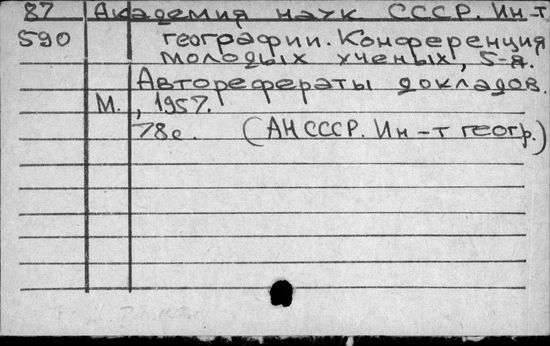 87 Академия наук СССР. Ин-т
590 географии. Конференция
молодых ученых, 5-я.
Авторефераты докладов.
М., 1957.
78с. (АН СССР. Ин-т геогр.)